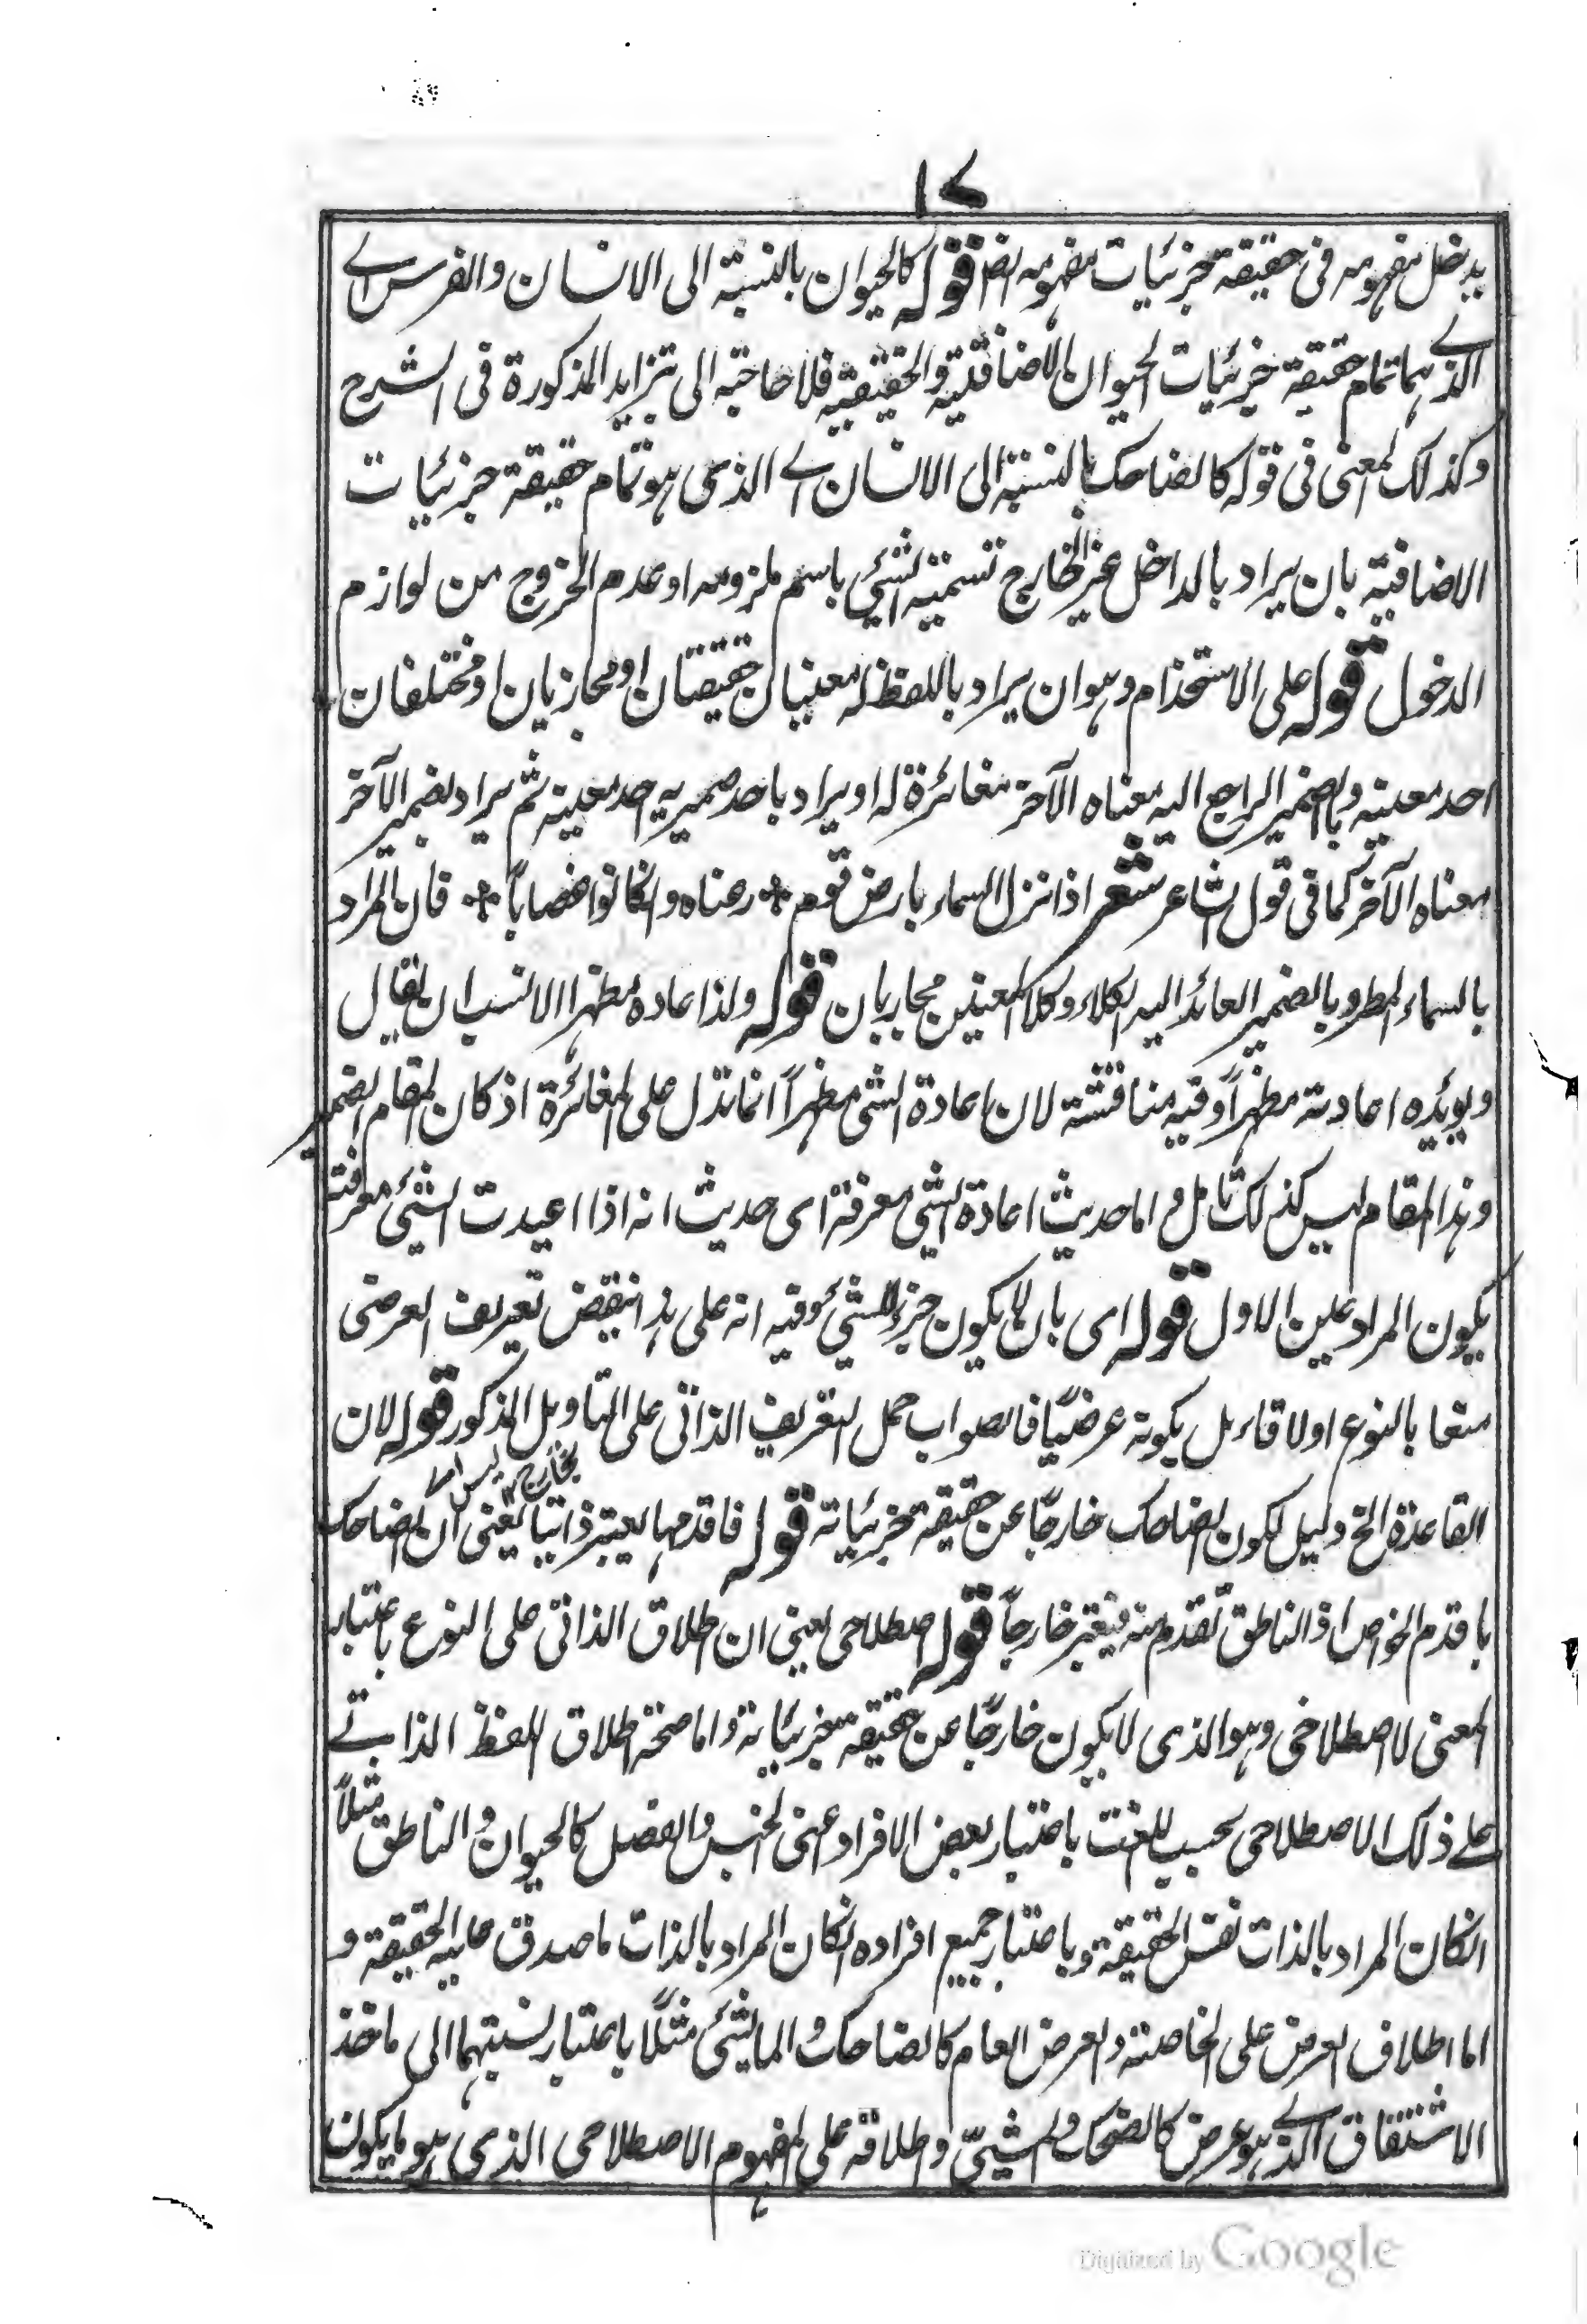 ١٧
يدخل مفهومه فى حقيقة جزئيات مفهومه ايضا قوله كالحيوان بالنسبة الى الانسان والفرس اے
الذے هما تمام حقيقة جزئيات الحيوان الاضافية والحقيقية فلا حاجة الى تزايد المذكورة فى الشرح
وكذلك المعنى فى قوله كالضاحك بالنسبة الى الانسان اے الذى هو تمام حقيقة جزئيات
الاضافية بان يراد بالداخل غير الخارج تسمية الشئ باسم ملزومه او عدم الخروج من لوازم
الدخول قوله على الاستخدام وهو ان يراد باللفظ له معنيان حقيقتان او مجازيان او مختلفان
احد معنيه وبالضمير الراجع اليه معناه الآخر مغائرة له او يراد باحد ضميريه احد معنيه ثم يراد بضمير الآخر
معناه الآخر كما فى قول الشاعر شعر اذا نزل السماء بارض قوم ٭ رعناه وانكانوا غضاباً ٭ فان المراد
بالسماء المطر وبالضمير العائد اليه الكلاء وكلا المعنيين مجازيان قوله ولذا عاده مظهرا الانسب ان يقال
ويؤيده اعادته مظهراً وفيه مناقشة لان اعادة الشئ مظهراً انما تدل على المغائرة اذ كان المقام الضمير
وهذا المقام ليس كذلك تامل واما حديث اعادة الشئ معرفة اى حديث انه اذا اعيدت الشئ معرفة
يكون المراد عين الاول قوله اى بان لا يكون جزء للشئ وفيه انه على هذا ينتقض تعريف العرضى
منعا بالنوع اولا قاءل بكونه عرضيًا فالصواب حمل التعريف الذاتى على التاويل المذكور قوله لان
القاعدة الخ دليل لكون الضاحك خارجًا عن حقيقة جزئياته قوله فاقدمها يعتبر ذاتيا يعنى ان الضاحك ليس
باقدم الخواص اذ الناطق تقدم منه فيعتبر خارجاً قوله اصطلاحى يعنى ان اطلاق الذاتى على النوع باعتبار
المعنى الاصطلاحى وهو الذى لا يكون خارجًا عن حقيقة جزئياته واما صحة اطلاق اللفظ الذاتے
علے ذلك الاصطلاحى بحسب اللغت باعتبار بعض الافراد اعنى الجنس والفصل كالحيوان والناطق مثلاً
انكان المراد بالذات نفس الحقيقة وباعتبار جميع افراده انكان المراد بالذات ما صدق عليه الحقيقة و
اما اطلاق العرض على الخاصة والعرض العام كالضاحك والماشئ مثلاً باعتبار نسبتهما الى ماخذ
الاشتقاق الذے هو عرض كالضحك والمشيّ واطلاقه على المفهوم الاصطلاحى الذى هو ما يكون
Digitized by Google